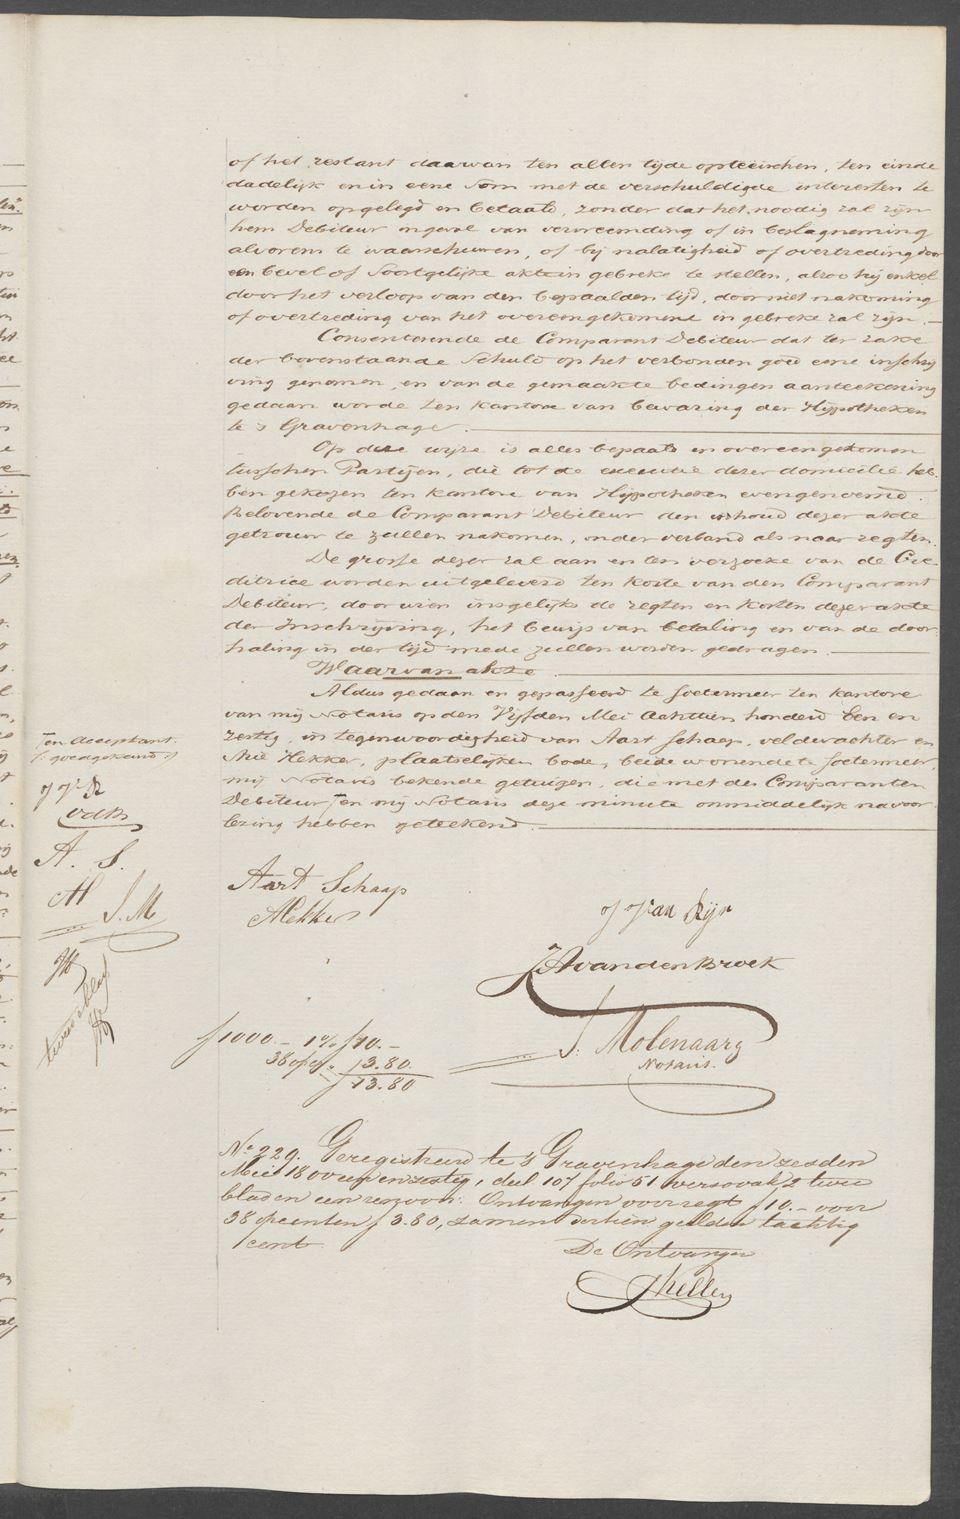 of het restant daarvan ten allen tyde opteeischen, ten einde
dadelijk en in eene Som met de verschuldigde interesten te
worden opgelegd en betaald, zonder dat het noodig zal zijn
hem Debiteur ingeval van vervreemding of in beslagneming
alvorens te waarschuwen, of bij nalatigheid of overtreding door
een bevel of Soortgelijke akte in gebreke te stellen, alzoo hij enkel
door het verloop van den bepaalden tijd, door niet nakoming
of overtreding van het overeengekomene in gebreke zal zijn. —
Consenterende de Comparant Debiteur dat ter zake
der bovenstaande Schuld op het verbonden goed eene inschrij
ving genomen, en van de gemaakte bedingen aanteekening
gedaan worde ten kantore van bewaring der Hypotheken
te 's Gravenhage. —
Op deze wijze is alles bepaald en overeengekomen
tusschen Partijen, die tot de executie dezer domicilie heb-
ben gekozen ten kantore van Hypotheken evengenoemd.
Belovende de Comparant Debiteur den inhoud dezer akte
getrouw te zullen nakomen, onder verband als naar regten.
De grosse dezer zal aan en ten verzoeke van de Cre-
ditrice worden uitgeleverd ten koste van den Comparant
Debiteur, door wien insgelijks de regten en kosten dezer akte
der Inschrijving, het bewijs van betaling en van de door-
haling in der tijd mede zullen worden gedragen. —
Waarvan akte. —
Aldus gedaan en gepasseerd te Soetermeer ten kantore
van mij Notaris op den Vijfden Mei Achttien honderd Een en
zestig, in tegenwoordigheid van Aart Schaap, veldwachter en
Arie Hekker, plaatselijken bode, beide wonende te Soetermeer,
mij Notaris bekende getuigen, die met de Comparanten
Debiteur en mij Notaris deze minute onmiddelijk na voor-
lezing hebben geteekend. —
en Acceptant
goedgekeurd
J V R
vdB
A. S.
AH
J. M
Aart Schaap
AHekker
J Van Rijn
JA van den Broek
J. Molenaar
Notaris.
f 1000.- 1% f 10.-
38 opc. " 3.80
f 13.80
No 229. Geregistreerd te 's Gravenhage den zesden
Mei 1800 een en zestig, deel 107 folio 51 verso vak 2 twee
bladen een renvooi. Ontvangen voor regt f 10.- voor
38 opcenten f 3.80, zamen dertien gulden tachtig
cent
De Ontvanger